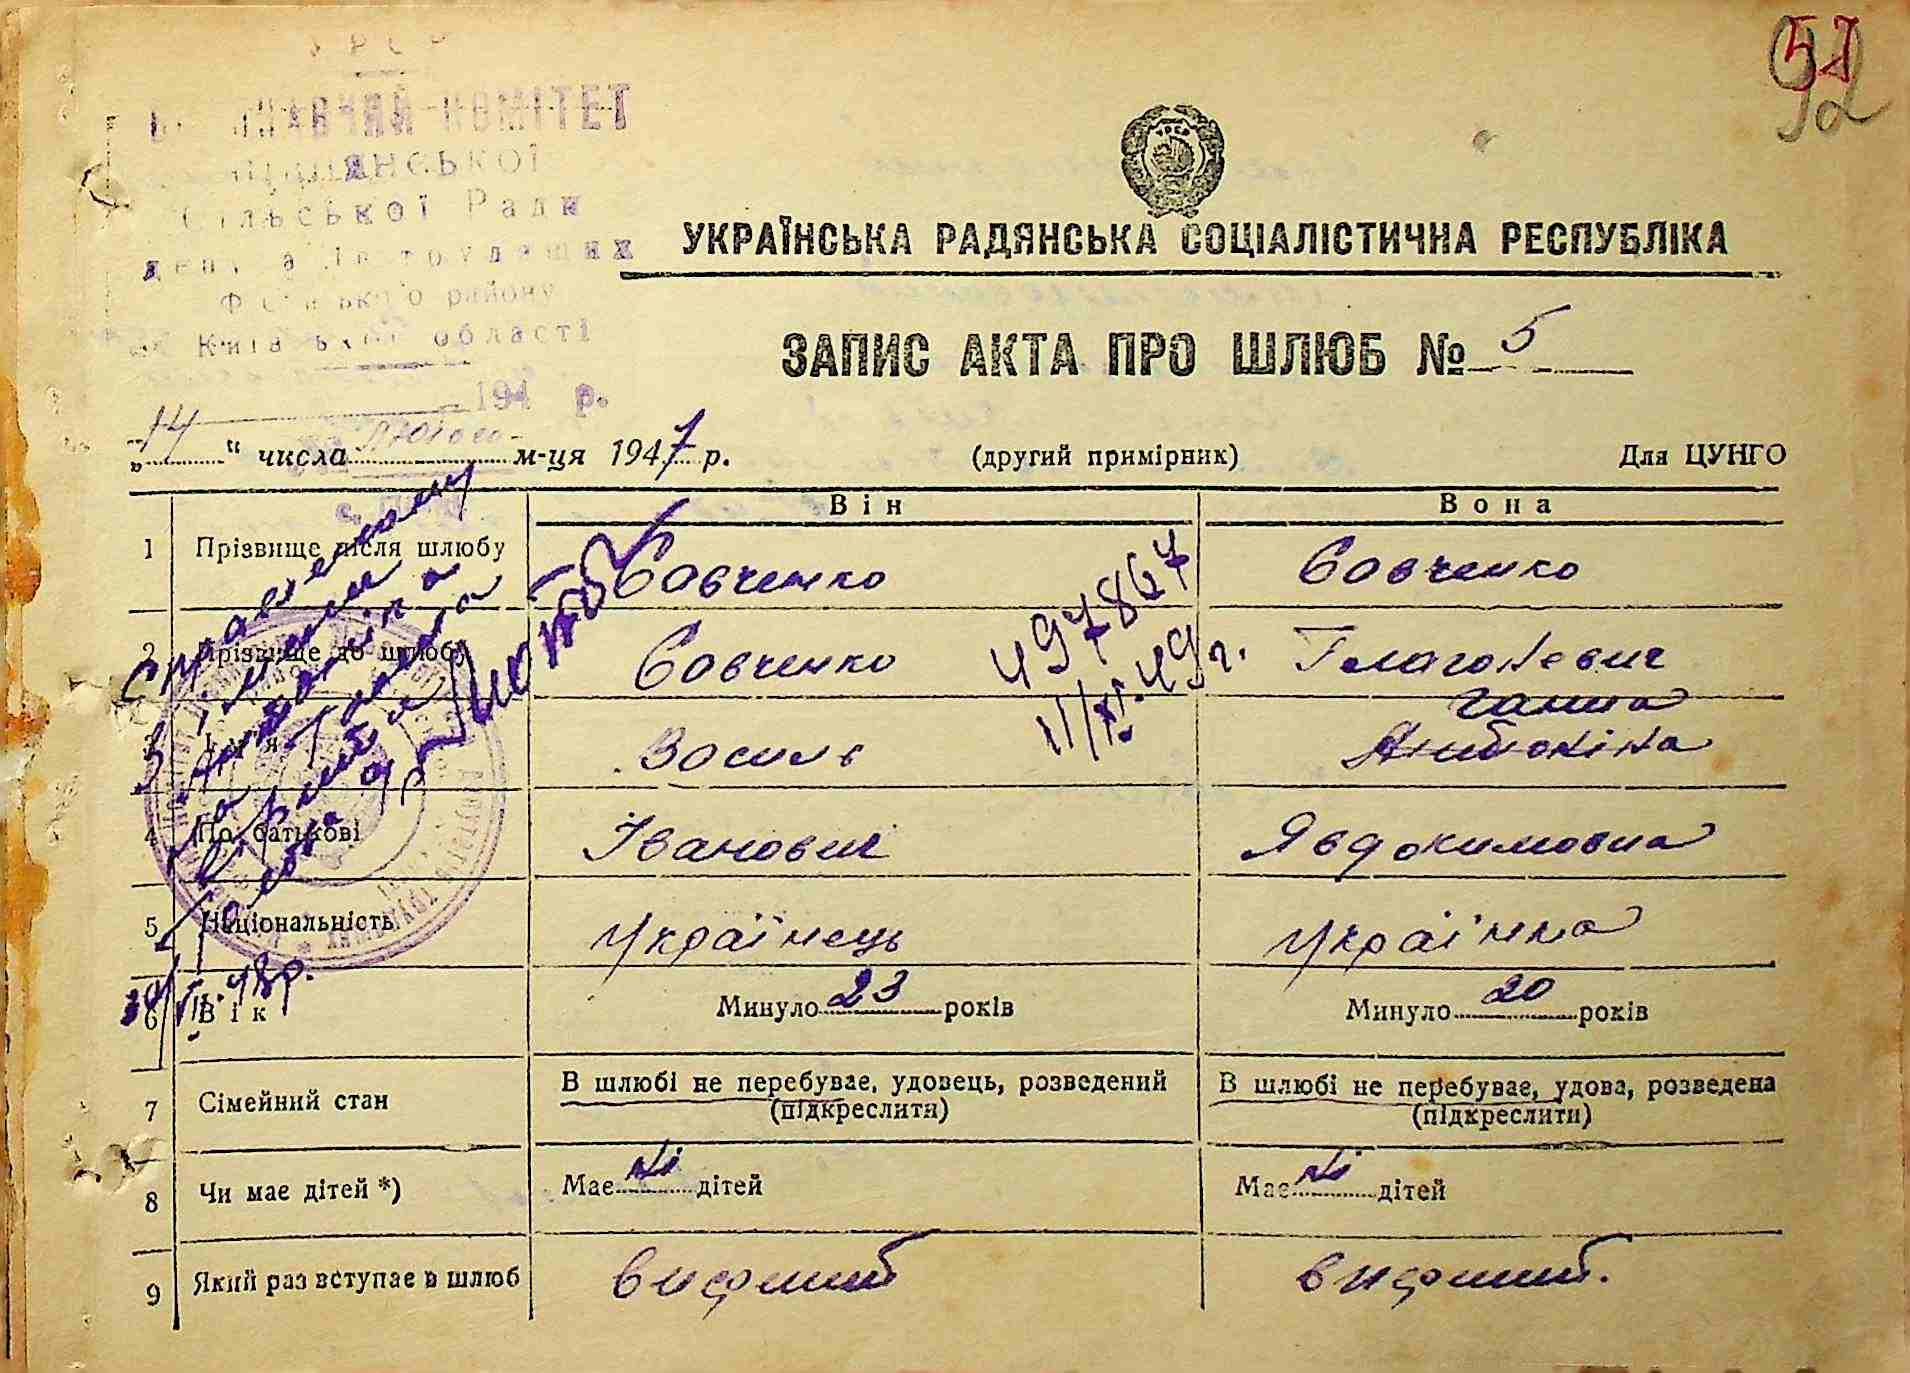 57
92
УРСР
ВИКОНАВЧИЙ КОМІТЕТ
Сільської Ради
депутатів трудящих
району
Київської області
194 р.
УКРАЇНСЬКА РАДЯНСЬКА СОЦІАЛІСТИЧНА РЕСПУБЛІКА
ЗАПИС АКТА ПРО ШЛЮБ № 5
„14“ числа лютого м-ця 1947 р. (другий примірник) Для ЦУНГО
Він Вона
1 Прізвище після шлюбу Савченко Савченко
497867
2 Прізвище до шлюбу Савченко
11/XI.49г.
Ганна
3 Ім'я Василь
4 По батькові Іванович Явдокимовна
5 Національність Українець Українка
6 Вік Минуло 23 років Минуло 20 років
7 Сімейний стан В шлюбі не перебуває, удовець, розведений В шлюбі не перебуває, удова, розведена
(підкреслити) (підкреслити)
8 Чи має дітей *) Має ні дітей Має ні дітей
9 Який раз вступає в шлюб